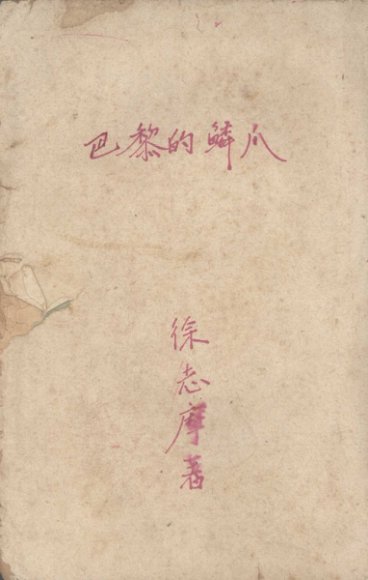 巴黎的鳞爪
徐志摩著